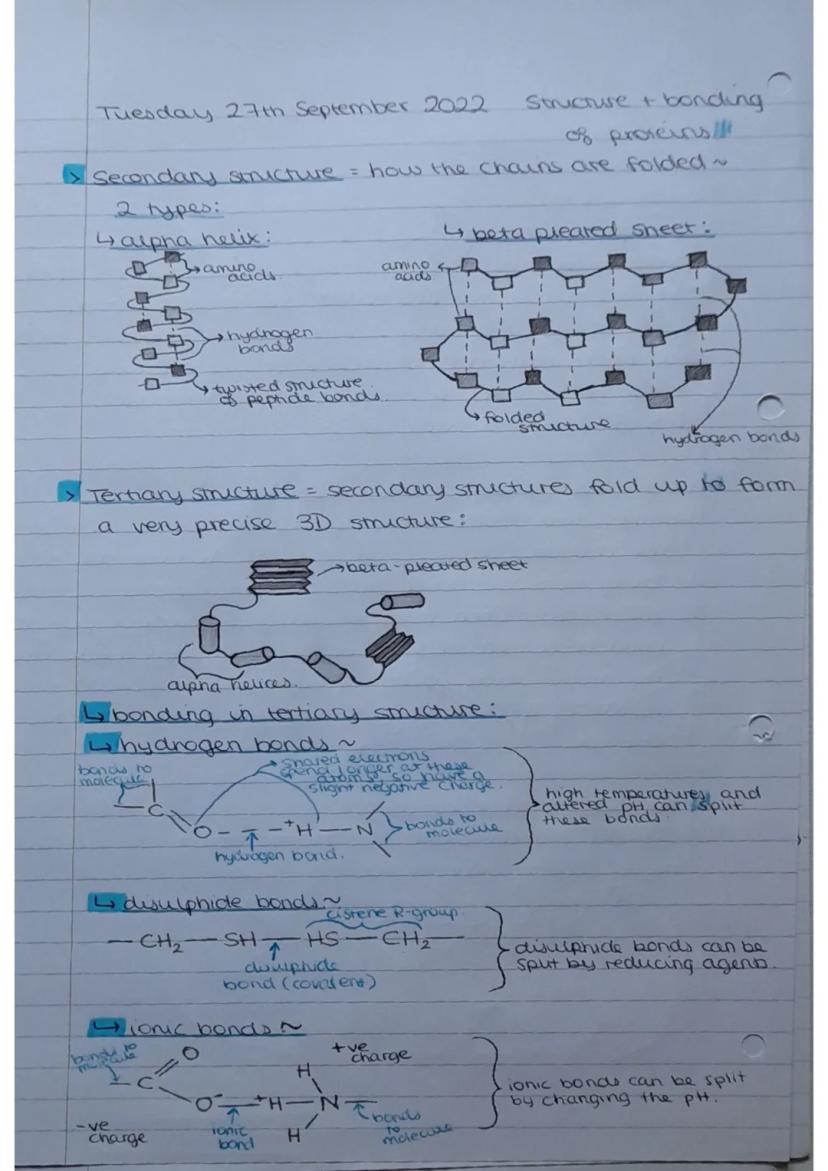 Tuesday 27th September 2022 Structure + bonding
of proteins
> Secondary structure = how the chains are folded ~
2 types:
↳ alpha helix:
↳ beta pleated sheet:
amino
acids
hydrogen
bonds
twisted structure
of peptide bonds.
amino
acids
folded
structure
hydrogen bonds
> Tertiary structure = secondary structures fold up to form
a very precise 3D structure:
beta-pleated sheet
alpha helices.
↳ bonding in tertiary structure:
↳ hydrogen bonds ~
bonds to
molecule
shared electrons
spend longer at these
atoms, so have a
slight negative charge.
C O - - - +H — N
bonds to
molecule
hydrogen bond.
high temperatures and
altered pH can split
these bonds.
↳ disulphide bonds ~
cistene R-group.
— CH₂ — SH — HS — CH₂ —
disulphide
bond (covalent)
disulphide bonds can be
split by reducing agents.
↳ ionic bonds ~
bonds to
molecule
O
+ve
charge
H
C
O⁻ — +H — N —
-ve
charge
ionic
bond
H
bonds
to
molecule
ionic bonds can be split
by changing the pH.